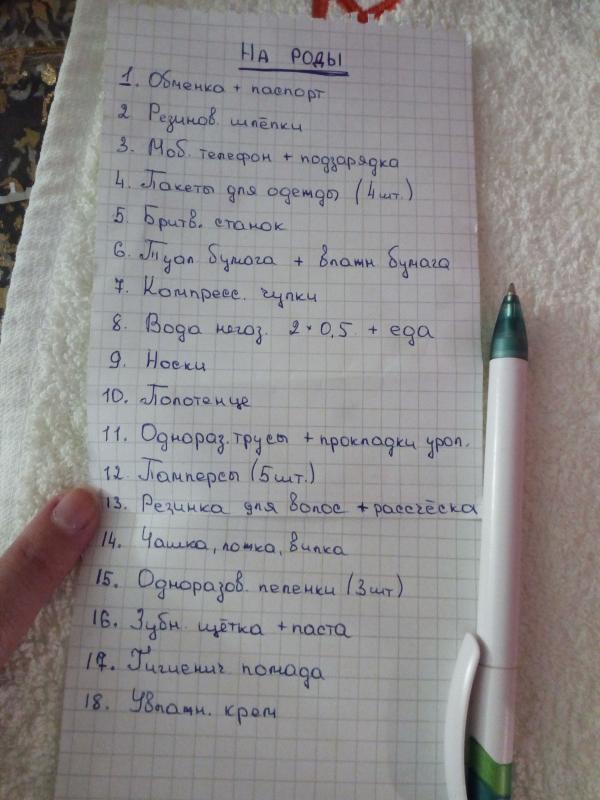 На роды
1. Обменка + паспорт
2 Резинов. шлёпки
3. Моб. телефон + подзарядка
4. Пакеты для одежды (4 шт.)
5. Бритв. станок
6. Туал бумага + влажн. бумага
7. Компресс. чулки
8. Вода негаз. 2*0,5 + еда
9. Носки
10. Полотенце
11. Однораз. трусы + прокладки урол.
12. Памперсы (5 шт.)
13. Резинка для волос + рассчёска
14. Чашка, ложка, вилка
15. Одноразов. пеленки (3 шт)
16. Зубн. щётка + паста
17. Гигиенич помада
18. Увлажн. крем